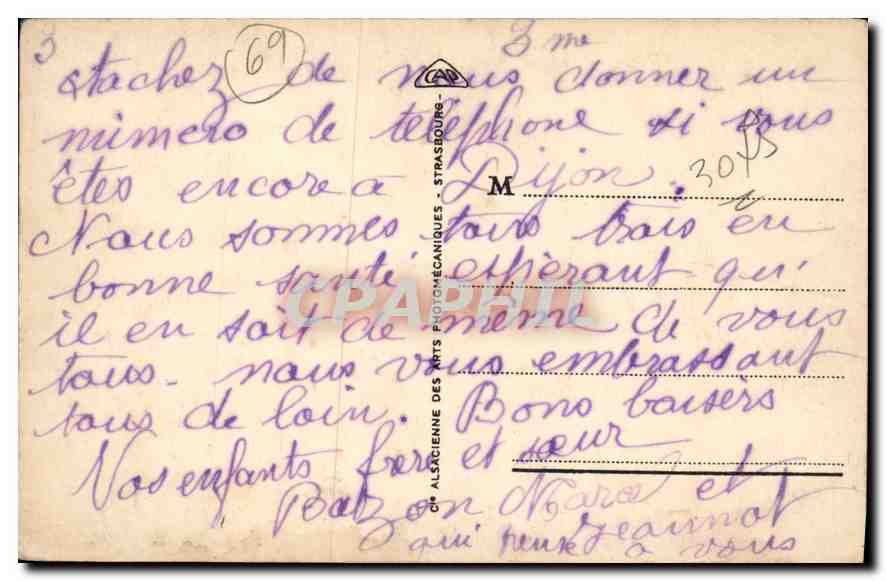 3
3me
69
tachez de nous donner un
numero de téléphone si vous
êtes encore a Dijon.
30F
Nous sommes tous trois en
bonne santé espèrant qu'
il en soit de même de vous
tous - nous vous embrassant
tous de loin. Bons baisèrs
Vos enfants frère et sœur
et
Jeannot
qui pense a vous
M
CAP
Cie ALSACIENNE DES ARTS PHOTOMÉCANIQUES - STRASBOURG -
CPAPHIL